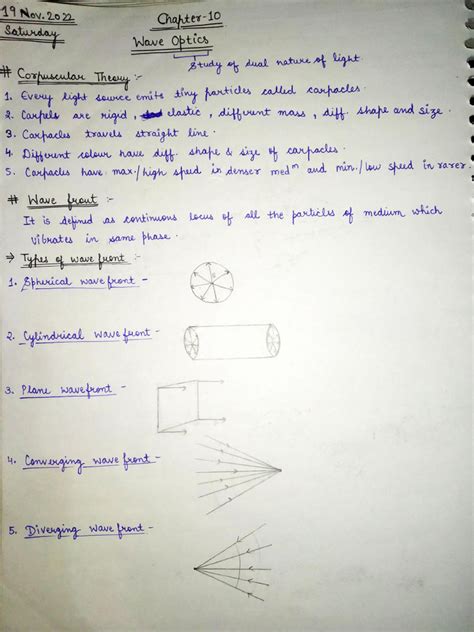 19 Nov. 2022
Saturday
Chapter-10
Wave Optics
Study of dual nature of light.
# Corpuscular Theory :-
1. Every light source emits tiny particles called carpacles.
2. Carpels are rigid, elastic, different mass, diff. shape and size.
3. Carpacles travels straight line.
4. Different colour have diff. shape & size of carpacles.
5. Carpacles have max./high speed in denser medᵐ and min./low speed in rarer.
# Wave front :-
It is defined as continuous locus of all the particles of medium which
vibrates in same phase.
⇒ Types of wave front :-
1. Spherical wave front -
2. Cylindrical wave front -
3. Plane wavefront -
4. Converging wave front -
5. Diverging wave front -